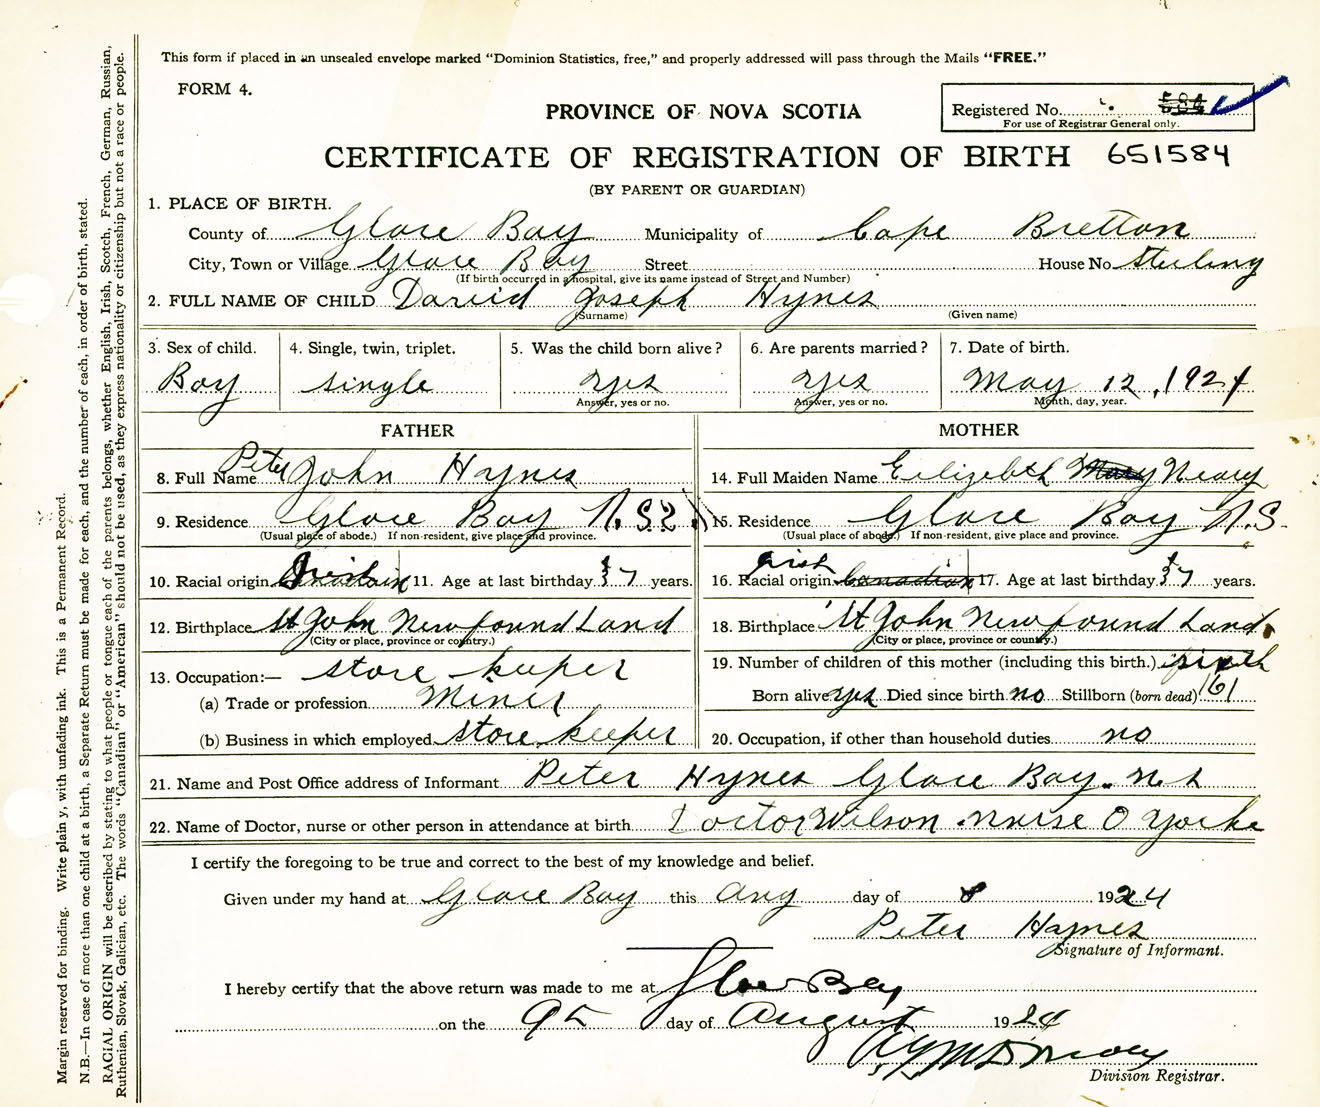 This form if placed in an unsealed envelope marked "Dominion Statistics, free," and properly addressed will pass through the Mails "FREE."
FORM 4.
PROVINCE OF NOVA SCOTIA
Registered No. 584
For use of Registrar General only.
CERTIFICATE OF REGISTRATION OF BIRTH 651584
(BY PARENT OR GUARDIAN)
1. PLACE OF BIRTH.
County of Glace Bay Municipality of Cape Bretton
City, Town or Village Glace Bay Street House No. Sterling
(If birth occurred in a hospital, give its name instead of Street and Number)
2. FULL NAME OF CHILD David Joseph Hynes
(Surname) (Given name)
3. Sex of child. 4. Single, twin, triplet. 5. Was the child born alive? 6. Are parents married? 7. Date of birth.
Boy single yes yes May 12, 1924
Answer, yes or no. Answer, yes or no. Month, day, year.
FATHER MOTHER
8. Full Name Peter John Hynes 14. Full Maiden Name Eilizebeth Mary Neary
9. Residence Glace Bay N.S. 15. Residence Glace Bay N.S.
(Usual place of abode.) If non-resident, give place and province. (Usual place of abode.) If non-resident, give place and province.
Irish
10. Racial origin 11. Age at last birthday 37 years. 16. Racial origin Canadian 17. Age at last birthday 37 years.
12. Birthplace St John Newfound Land 18. Birthplace St John Newfound Land
(City or place, province or country.) (City or place, province or country.)
13. Occupation:— store keeper 19. Number of children of this mother (including this birth.) sixth
(a) Trade or profession Miner Born alive yes Died since birth no Stillborn (born dead) 161
(b) Business in which employed store keeper 20. Occupation, if other than household duties no
21. Name and Post Office address of Informant Peter Hynes Glace Bay. N S
22. Name of Doctor, nurse or other person in attendance at birth Doctor Wilson nurse O Yorke
I certify the foregoing to be true and correct to the best of my knowledge and belief.
Given under my hand at Glace Bay this Aug day of 8 1924
Peter Hynes
Signature of Informant.
I hereby certify that the above return was made to me at Glace Bay
on the 9th day of August 1924
Division Registrar.
Margin reserved for binding. Write plain y, with unfading ink. This is a Permanent Record.
N.B.—In case of more than one child at a birth, a Separate Return must be made for each, and the number of each, in order of birth, stated.
RACIAL ORIGIN will be described by stating to what people or tongue each of the parents belongs, whether English, Irish, Scotch, French, German, Russian,
Ruthenian, Slovak, Galician, etc. The words "Canadian" or "American" should not be used, as they express nationality or citizenship but not a race or people.